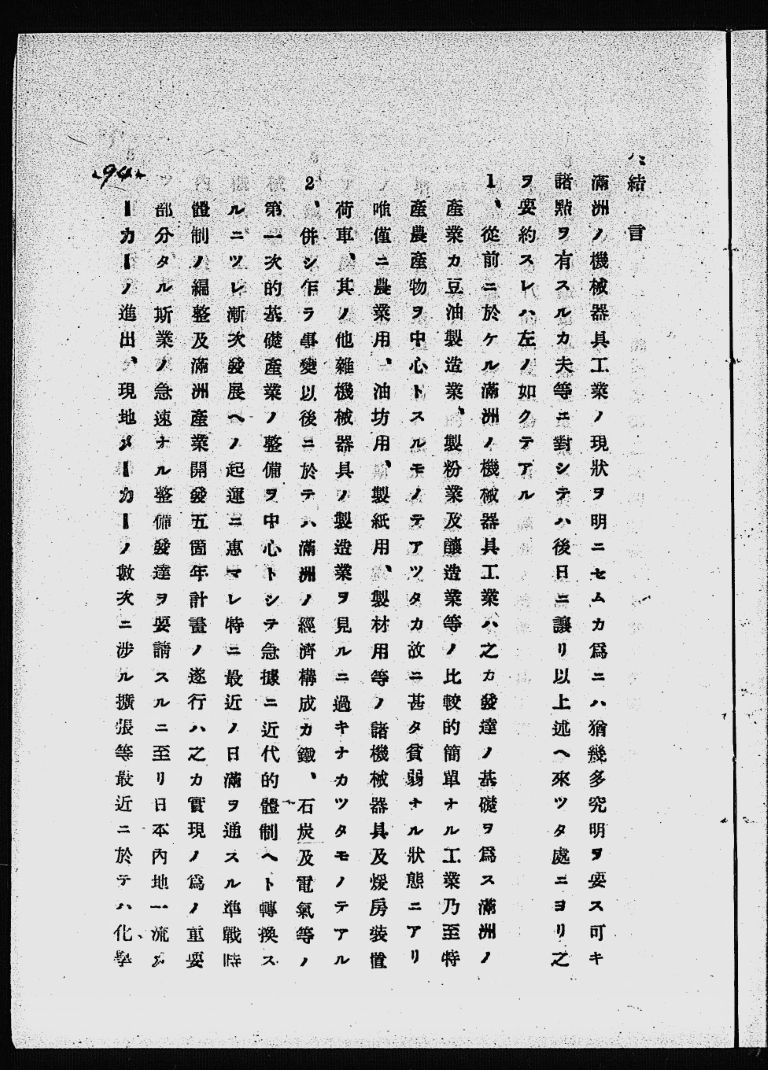 八、結言
滿洲ノ機械器具工業ノ現狀ヲ明ニセムカ爲ニハ猶幾多究明ヲ要ス可キ
諸點ヲ有スルカ夫等ニ對シテハ後日ニ讓リ以上述ヘ來ツタ處ニヨリ之
ヲ要約スレハ左ノ如クテアル
1、從前ニ於ケル滿洲ノ機械器具工業ハ之カ發達ノ基礎ヲ爲ス滿洲ノ
產業カ豆油製造業、製粉業及釀造業等ノ比較的簡單ナル工業乃至特
產農產物ヲ中心トスルモノテアツタカ故ニ甚タ貧弱ナル狀態ニアリ
唯僅ニ農業用、油坊用、製紙用、製材用等ノ諸機械器具及煖房裝置
荷車、其ノ他雜機械器具ノ製造業ヲ見ルニ過キナカツタモノテアル
2、併シ乍ラ事變以後ニ於テハ滿洲ノ經濟構成カ鐵、石炭及電氣等ノ
第一次的基礎產業ノ整備ヲ中心トシテ急據ニ近代的體制ヘト轉換ス
ルニツレ漸次發展ヘノ起運ニ惠マレ特ニ最近ノ日滿ヲ通スル準戰時
體制ノ編整及滿洲產業開發五箇年計畫ノ遂行ハ之カ實現ノ爲ノ重要
部分タル斯業ノ急速ナル整備發達ヲ要請スルニ至リ日本內地一流メ
ーカーノ進出、現地メーカーノ數次ニ涉ル擴張等最近ニ於テハ化學
-94-